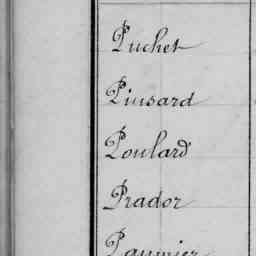 Puchet
Piusard
Poulard
Prador
Paumier